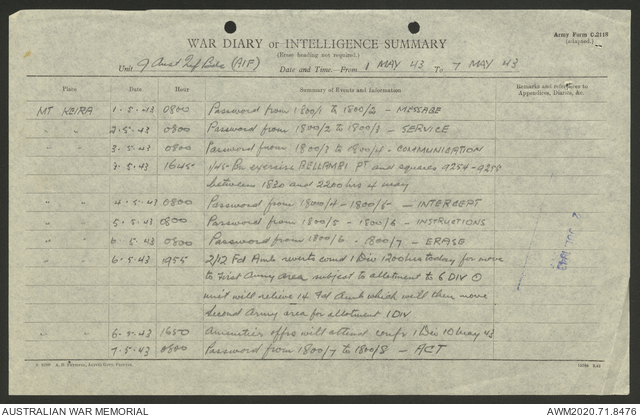 Army Form C.2118
(adapted.)
WAR DIARY or INTELLIGENCE SUMMARY
(Erase heading not required.)
Unit 9 Aust Inf Bde (AIF) Date and Time—From 1 MAY 43 To 7 MAY 43
Place Date Hour Summary of Events and Information Remarks and references to
Appendices, Diaries, &c.
MT KEIRA 1.5.43 0800 Password from 1800/1 to 1800/2 - MESSAGE
" " 2.5.43 0800 Password from 1800/2 to 1800/3 - SERVICE
" " 3.5.43 0800 Password from 1800/3 to 1800/4 - COMMUNICATION
" " 3.5.43 1645 1/45 Bn exercise BELLAMBI PT and squares 9254-9255
between 1830 and 2200hrs 4 May
" " 4.5.43 0800 Password from 1800/4 - 1800/5 - INTERCEPT
" " 5.5.43 0800 Password from 1800/5 - 1800/6 - INSTRUCTIONS
" " 6.5.43 0800 Password from 1800/6 - 1800/7 - ERASE
" " 6.5.43 1955 2/12 Fd Amb reverts comd 1 Div 1200hrs today for move
to First Army area subject to allotment to 6 DIV
unit will relieve 14 Fd Amb which will then move
Second Army area for allotment 1 DIV
" " 6.5.43 1650 Amenities offrs will attend conf 1 Div 10 May 43
7.5.43 0800 Password from 1800/7 to 1800/8 - ACT
JUL 1943
AUSTRALIAN WAR MEMORIAL
AWM2020.71.8476